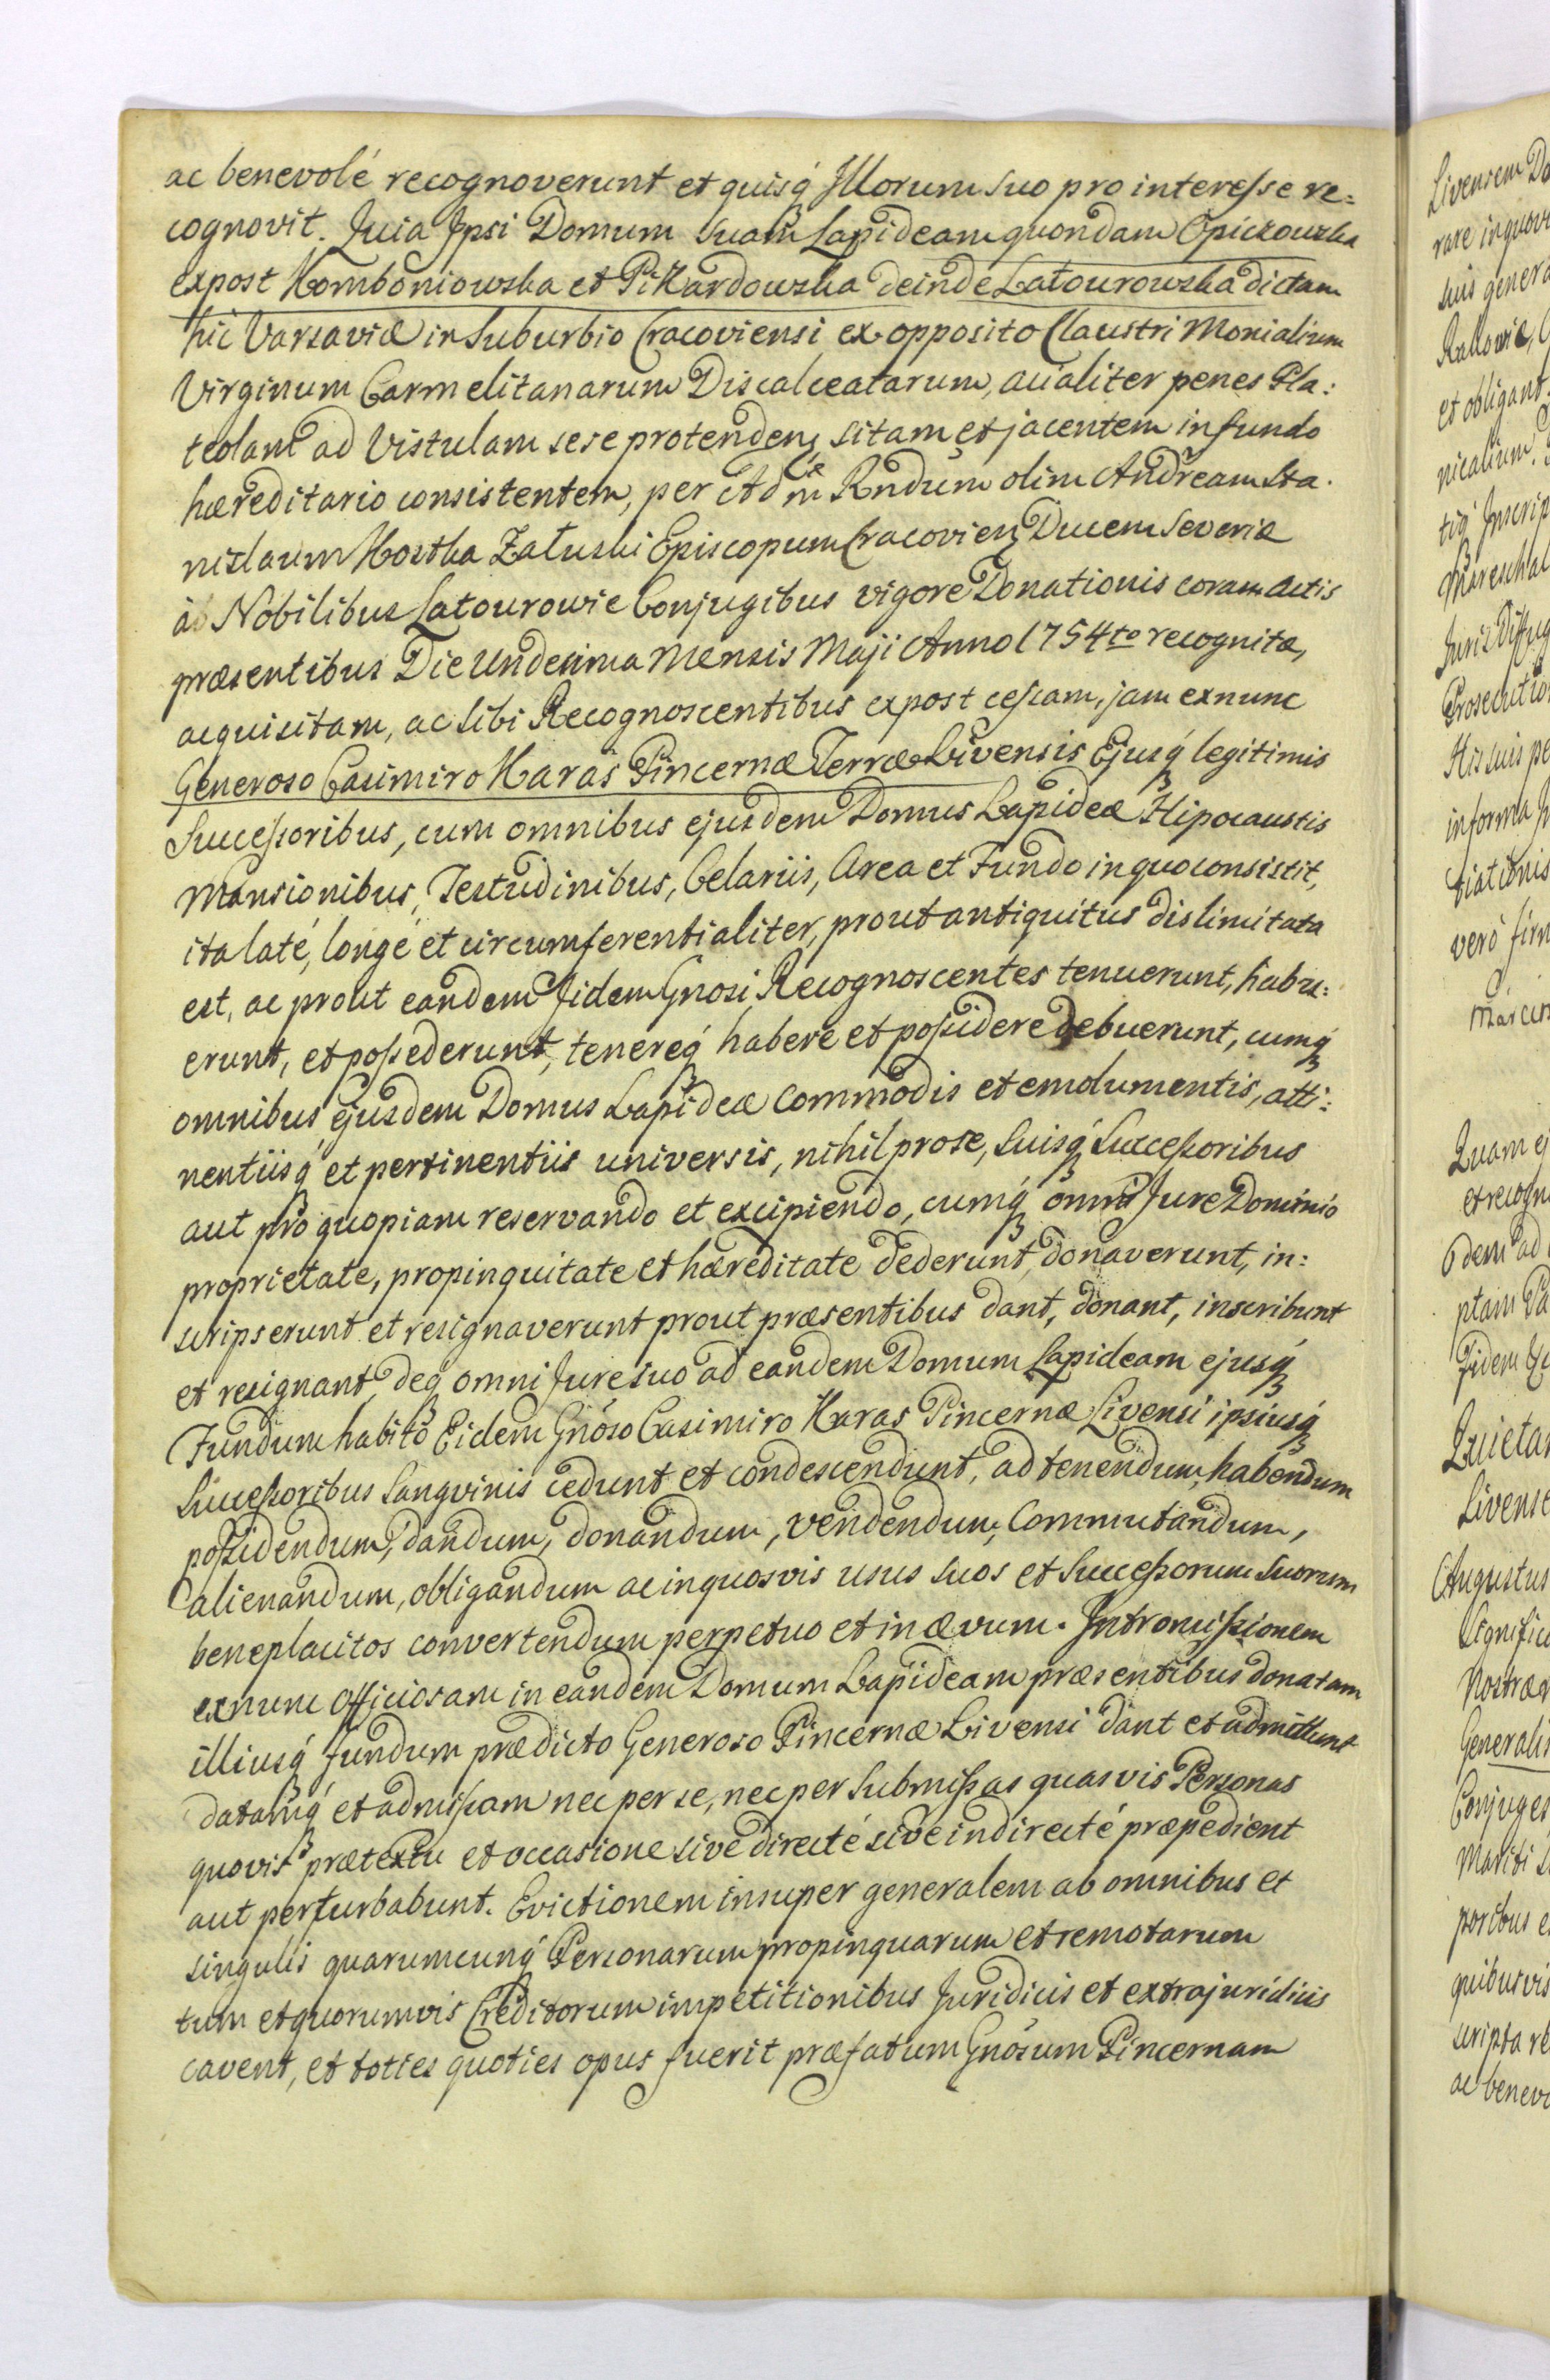 ac benevolé recognoverunt et quisq́ Illorum suo pro interesse re=
cognovit. Quia Ipsi Domum suam Lapideam quondam Opickowska
expost Komboniowska et Pikardowska deinde Latourowska dictam
hic Varsaviæ in Suburbio Cracoviensi ex opposito Claustri Monialium
Virginum Carmelitanarum Discalceatarum, ac aliter penes Pla=
teolam ad Vistulam sese protenden, sitam et jacentem in fundo
hæreditario consistentem, per Adm Rndum olim Andream Sta-
nislaum Kostka Załuski Episcopum Cracovien Ducem Severiæ
ab Nobilibus Latourowie Conjugibus vigore Donationis coram Actis
præsentibus Die Undecima Mensis Maji Anno 1754to recognitæ,
acquisitam, ac sibi Recognoscentibus expost cessam, jam exnunc
Generoso Casimiro Karaś Pincernæ Terræ Livensis Ejusq́ legitimis
Successoribus, cum omnibus ejusdem Domus Lapideæ Hipocaustis
Mansionibus, Testudinibus, Celariis, Area et Fundo in quo consistit,
ita laté, longé et circumferentialiter, prout antiquitus dislimitata
est, ac prout eandem Iidem Gnosi Recognoscentes tenuerunt, habu=
erunt, et possederunt, tenereq́ habere et possidere debuerunt, cumq́
omnibus ejusdem Domus Lapideæ commodis et emolumentis, atti=
nentiisq́ et pertinentiis universis, nihil pro se, suisq́ Successoribus
aut pro quopiam reservando et excipiendo, cumq́ omni Jure Dominio
proprietate, propinquitate et hæreditate dederunt, donaverunt, in=
scripserunt et resignaverunt prout præsentibus dant, donant, inscribunt
et resignant, deq́ omni Jure suo ad eandem Domum Lapideam ejusq́
Fundum habito Eidem Gnoso Casimiro Karaś Pincernæ Livensi ipsiusq́
Successoribus Sangvinis cedunt et condescendunt, ad tenendum, habendum
possidendum, dandum, donandum, vendendum, commutandum,
alienandum, obligandum ac in quosvis usus suos et Successorum suorum
beneplacitos convertendum perpetuo et in ævum. Intromissionem
exnunc officiosam in eandem Domum Lapideam præsentibus donatam
illiusq́ fundum prædicto Generoso Pincernæ Livensi dant et admittunt
datamq́ et admissam nec per se, nec per submissas quasvis Personas
quovis prætextu et occasione sive directé sive indirecté præpedient
aut perturbabunt. Evictionem insuper generalem ab omnibus et
singulis quarumcunq́ Personarum propinquarum et remotarum
tum et quorumvis Creditorum impetitionibus Juridicis et extrajuridicis
cavent, et toties quoties opus fuerit præfatum Gnosum Pincernam
Livensem
rare in
suis genera
et obligant
nicalium
Mareschal
in forma
tiationis
vero
Quam
et recogn
Livens
Augustus
Signific
Nostræ
Generali
Conjuges
Mariti
quibusvis
scripta re
ac benevo